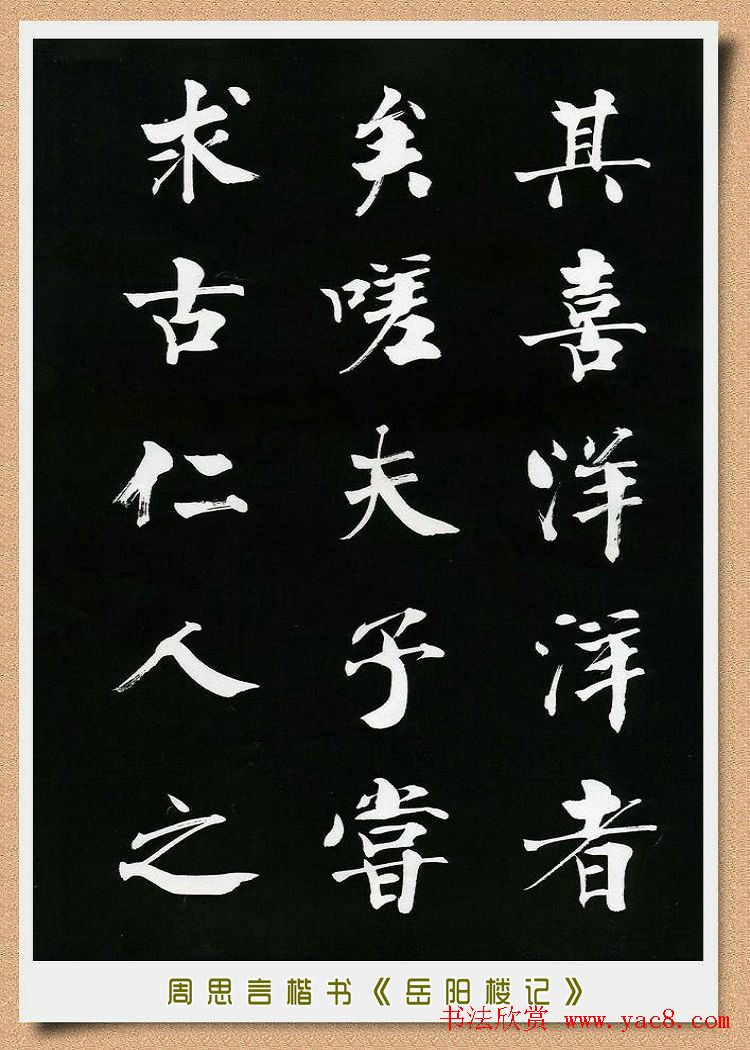 其喜洋洋者
矣嗟夫予嘗
求古仁人之
周思言楷书《岳阳楼记》
书法欣赏 www.yac8.com